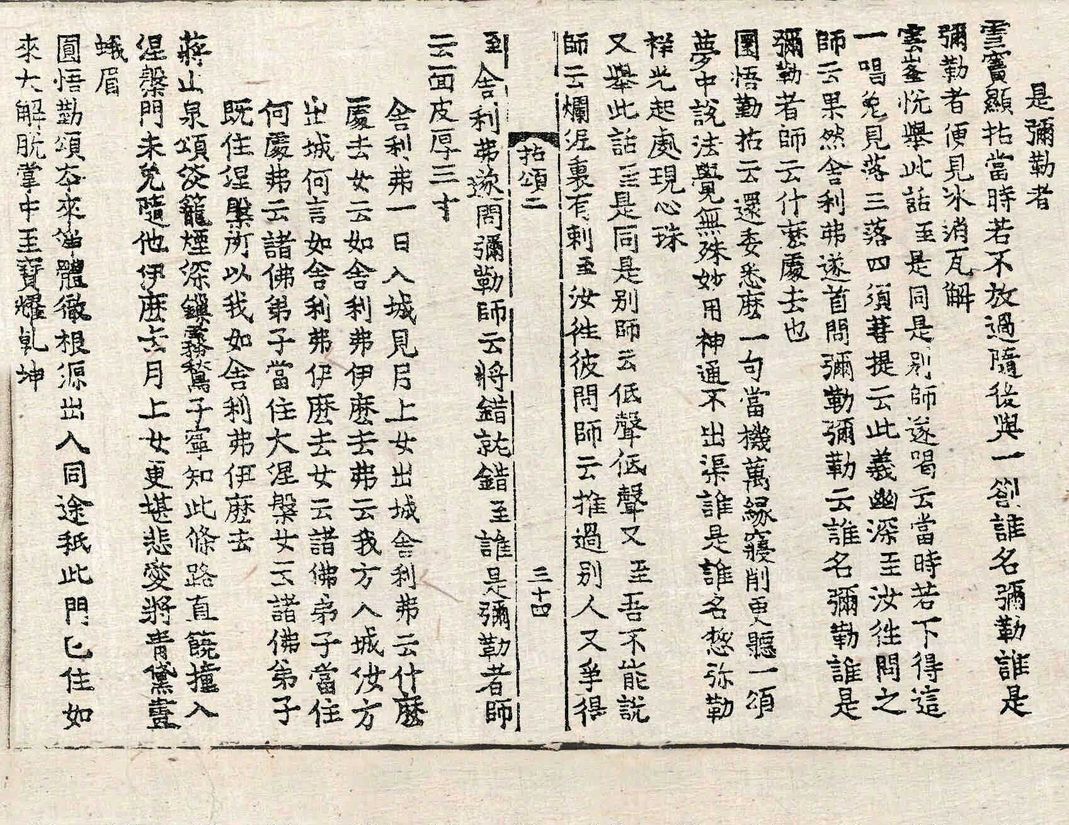 是彌勒者
雪竇顯拈當時若不放過隨後與一劄誰名彌勒誰是
彌勒者便見氷消瓦解
雲峯悅舉此話至是同是別師遂喝云當時若下得這
一喝免見落三落四須菩提云此義幽深至汝徃問之
師云果然舍利弗遂首問彌勒彌勒云誰名彌勒誰是
彌勒者師云什麽處去也
圜悟勤拈云還委悉麽一句當機萬緣寢削更聽一頌
夢中說法覺無殊妙用神通不出渠誰是誰名愁弥勒
祥光起處現心珠
又舉此話至是同是别師云低聲低聲又至吾不能說
師云爛泥裏有刺至汝徃彼問師云推過别人又爭得
拈頌二
三十四
至舍利弗遂問彌勒師云將錯就錯至誰是彌勒者師
云面皮厚三寸
舍利弗一日入城見月上女出城舍利弗云什麽
處去女云如舍利弗伊麽去弗云我方入城汝方
出城何言如舍利弗伊麽去女云諸佛弟子當住
何處弗云諸佛弟子當住大涅槃女云諸佛弟子
既住涅槃所以我如舍利弗伊麽去
蔣山泉頌谷籠煙深鎖霧鶖子寧知此條路直饒撞入
涅槃門未免隨他伊麽去月上女更堪悲愛將青黛畫
蛾眉
圓悟勤頌本來體徹根源出入同途秖此門已住如
來大解脫掌中至寶耀乾坤